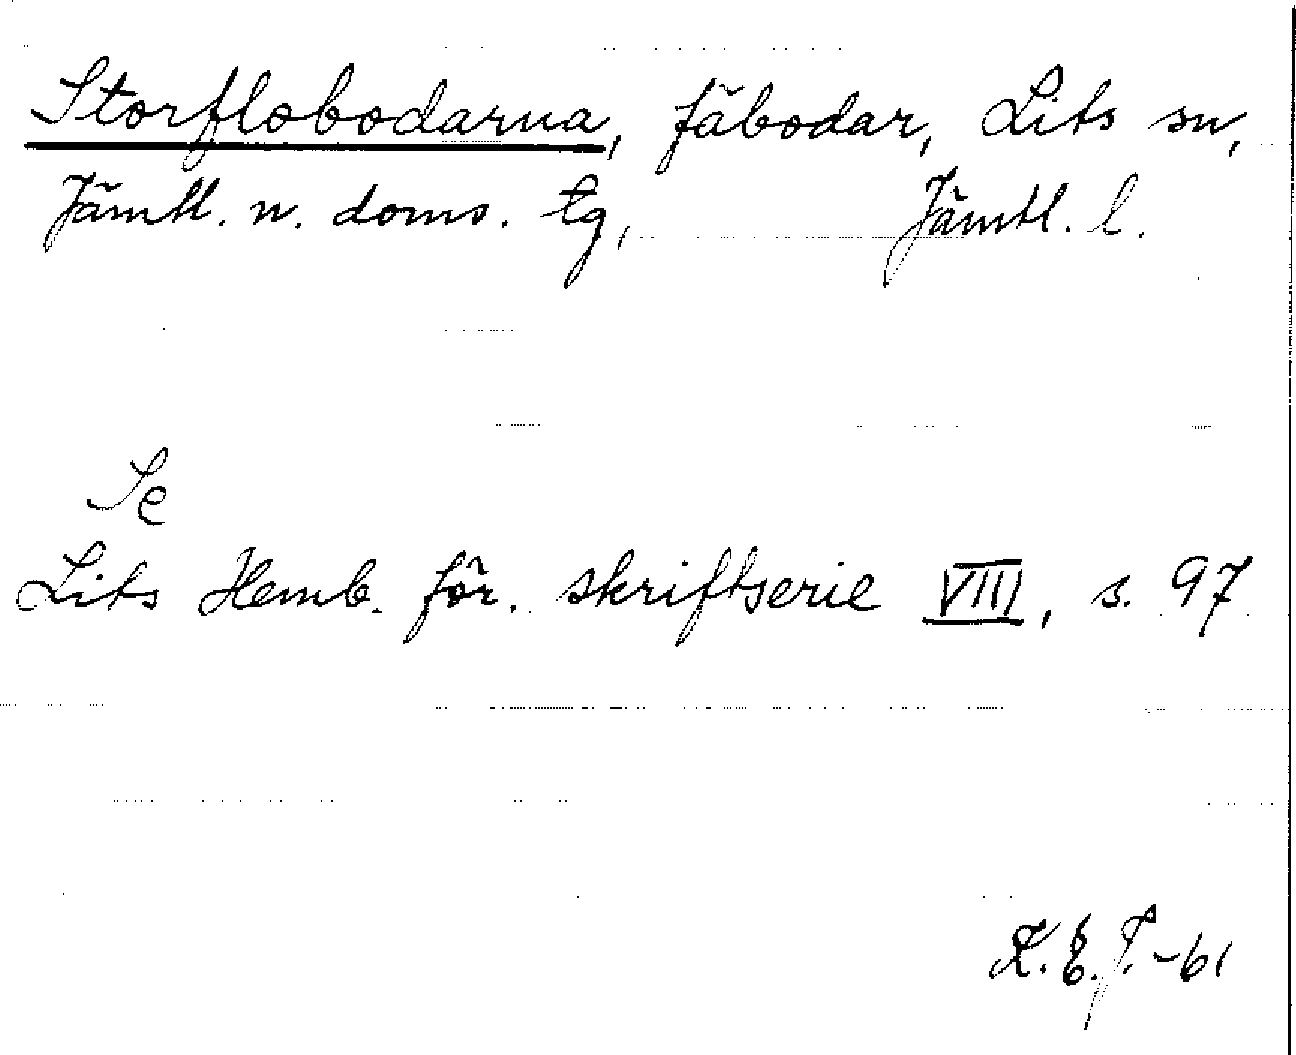 Storflobodarna, fäbodar, Lits sn,
Jämtl. n. doms. tg, Jämtl. l.
Se
Lits Hemb. för. skriftserie VIII, s. 97
K.E.J.-61